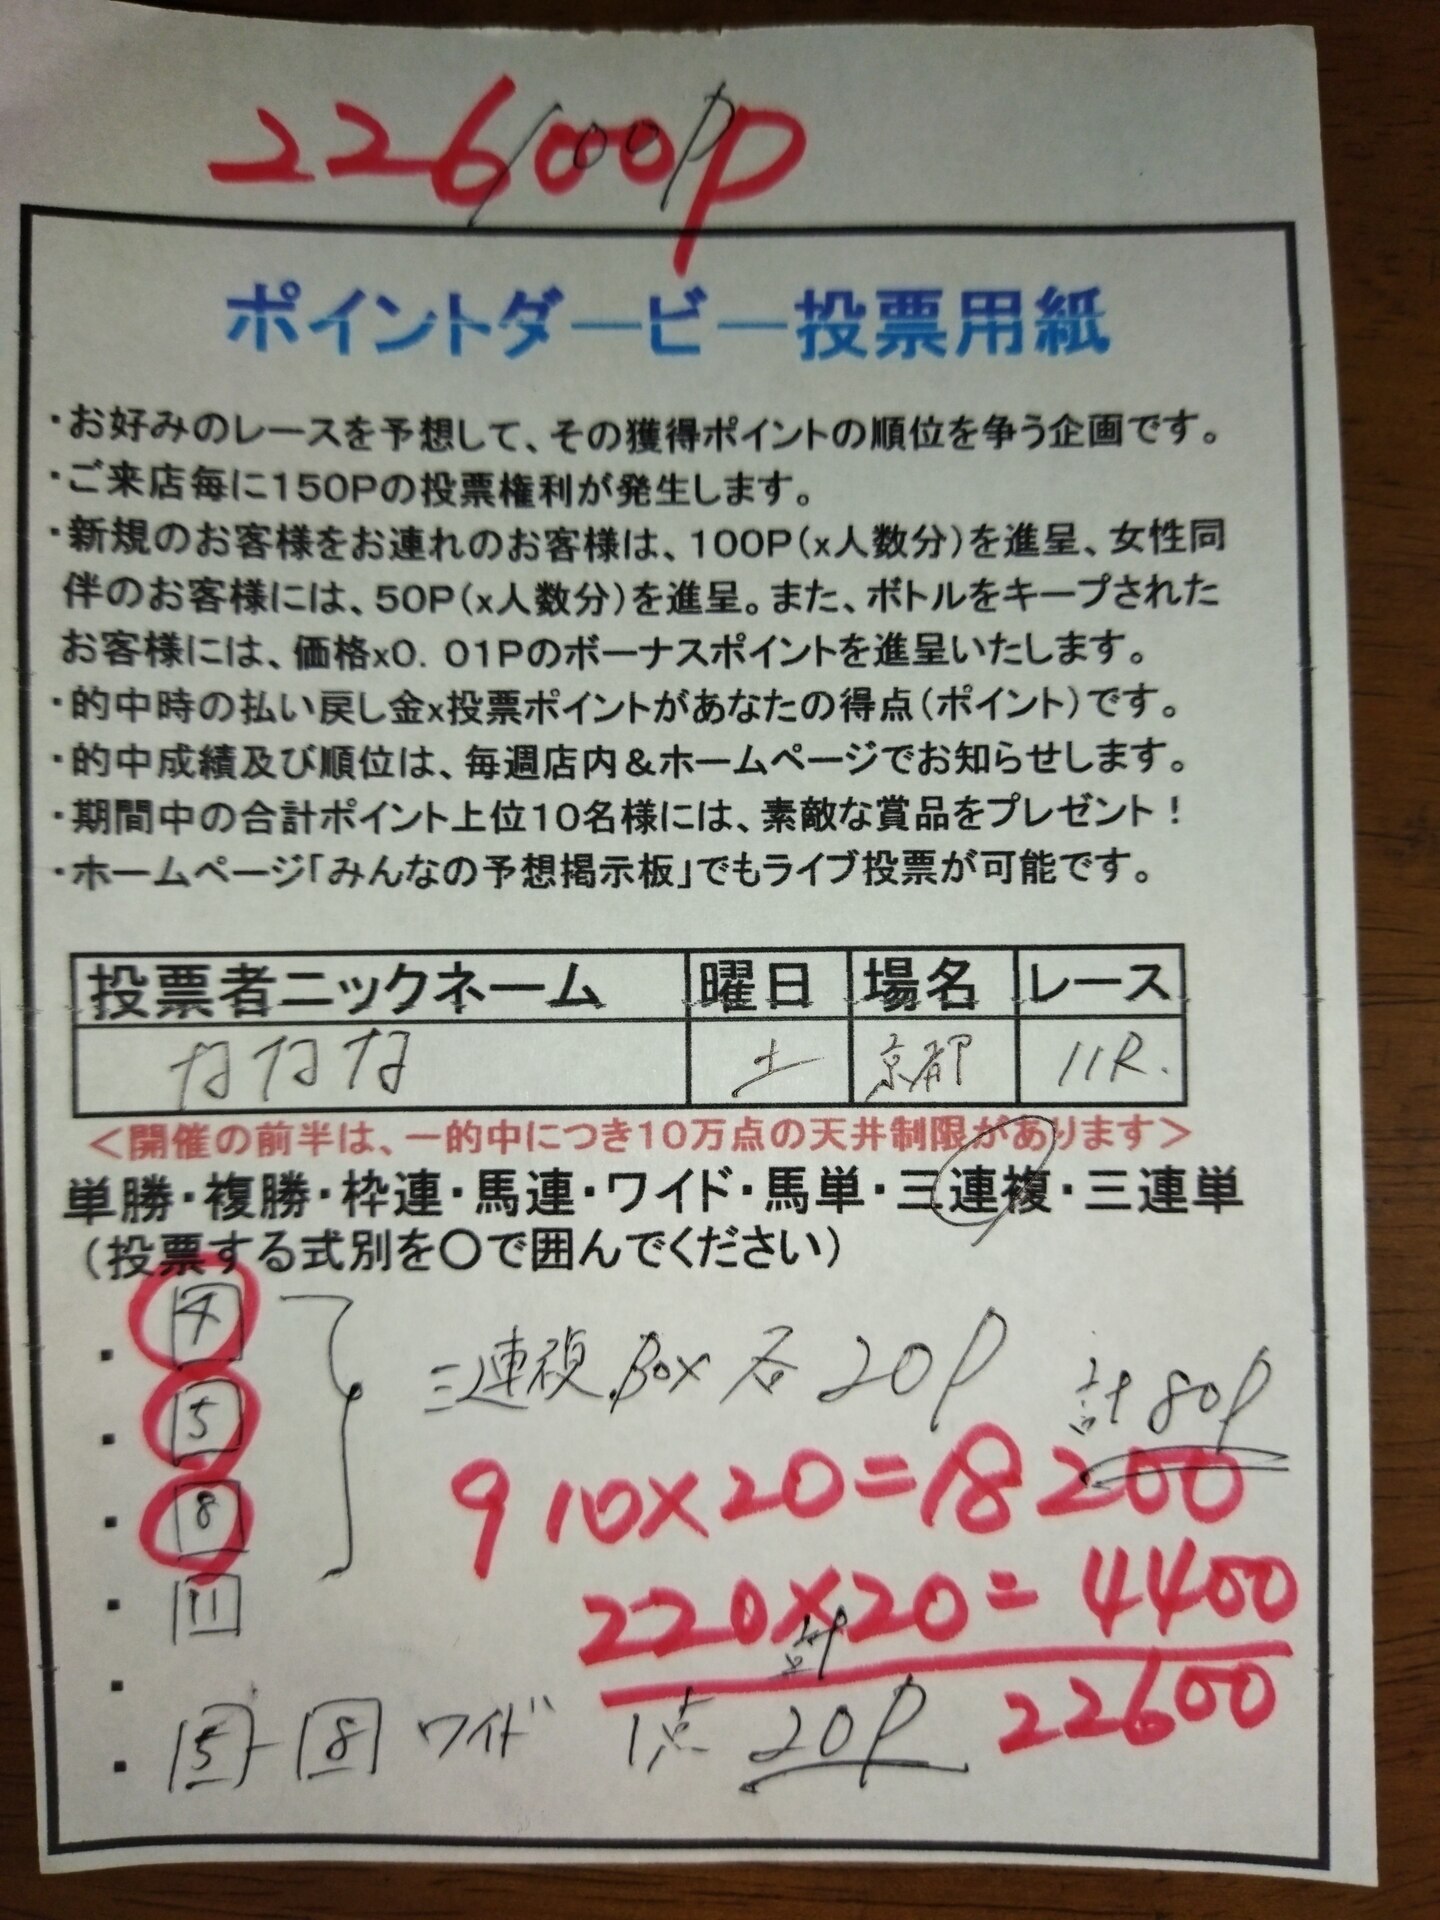 22600P
ポイントダービー投票用紙
・お好みのレースを予想して、その獲得ポイントの順位を争う企画です。
・ご来店毎に150Pの投票権利が発生します。
・新規のお客様をお連れのお客様は、100P(x人数分)を進呈、女性同
伴のお客様には、50P(x人数分)を進呈。また、ボトルをキープされた
お客様には、価格x0.01Pのボーナスポイントを進呈いたします。
・的中時の払い戻し金x投票ポイントがあなたの得点(ポイント)です。
・的中成績及び順位は、毎週店内&ホームページでお知らせします。
・期間中の合計ポイント上位10名様には、素敵な賞品をプレゼント!
・ホームページ「みんなの予想掲示板」でもライブ投票が可能です。
投票者ニックネーム 曜日 場名 レース
ななな 土 京都 11R.
<開催の前半は、一的中につき10万点の天井制限があります>
単勝・複勝・枠連・馬連・ワイド・馬単・三連複・三連単
(投票する式別を〇で囲んでください)
・ 4
三連複.Box 各 20P 計80P
・ 5
・ 8
910×20=18200
・ 11
220×20=4400
22600
・ 5-8 ワイド 1点 計 20P